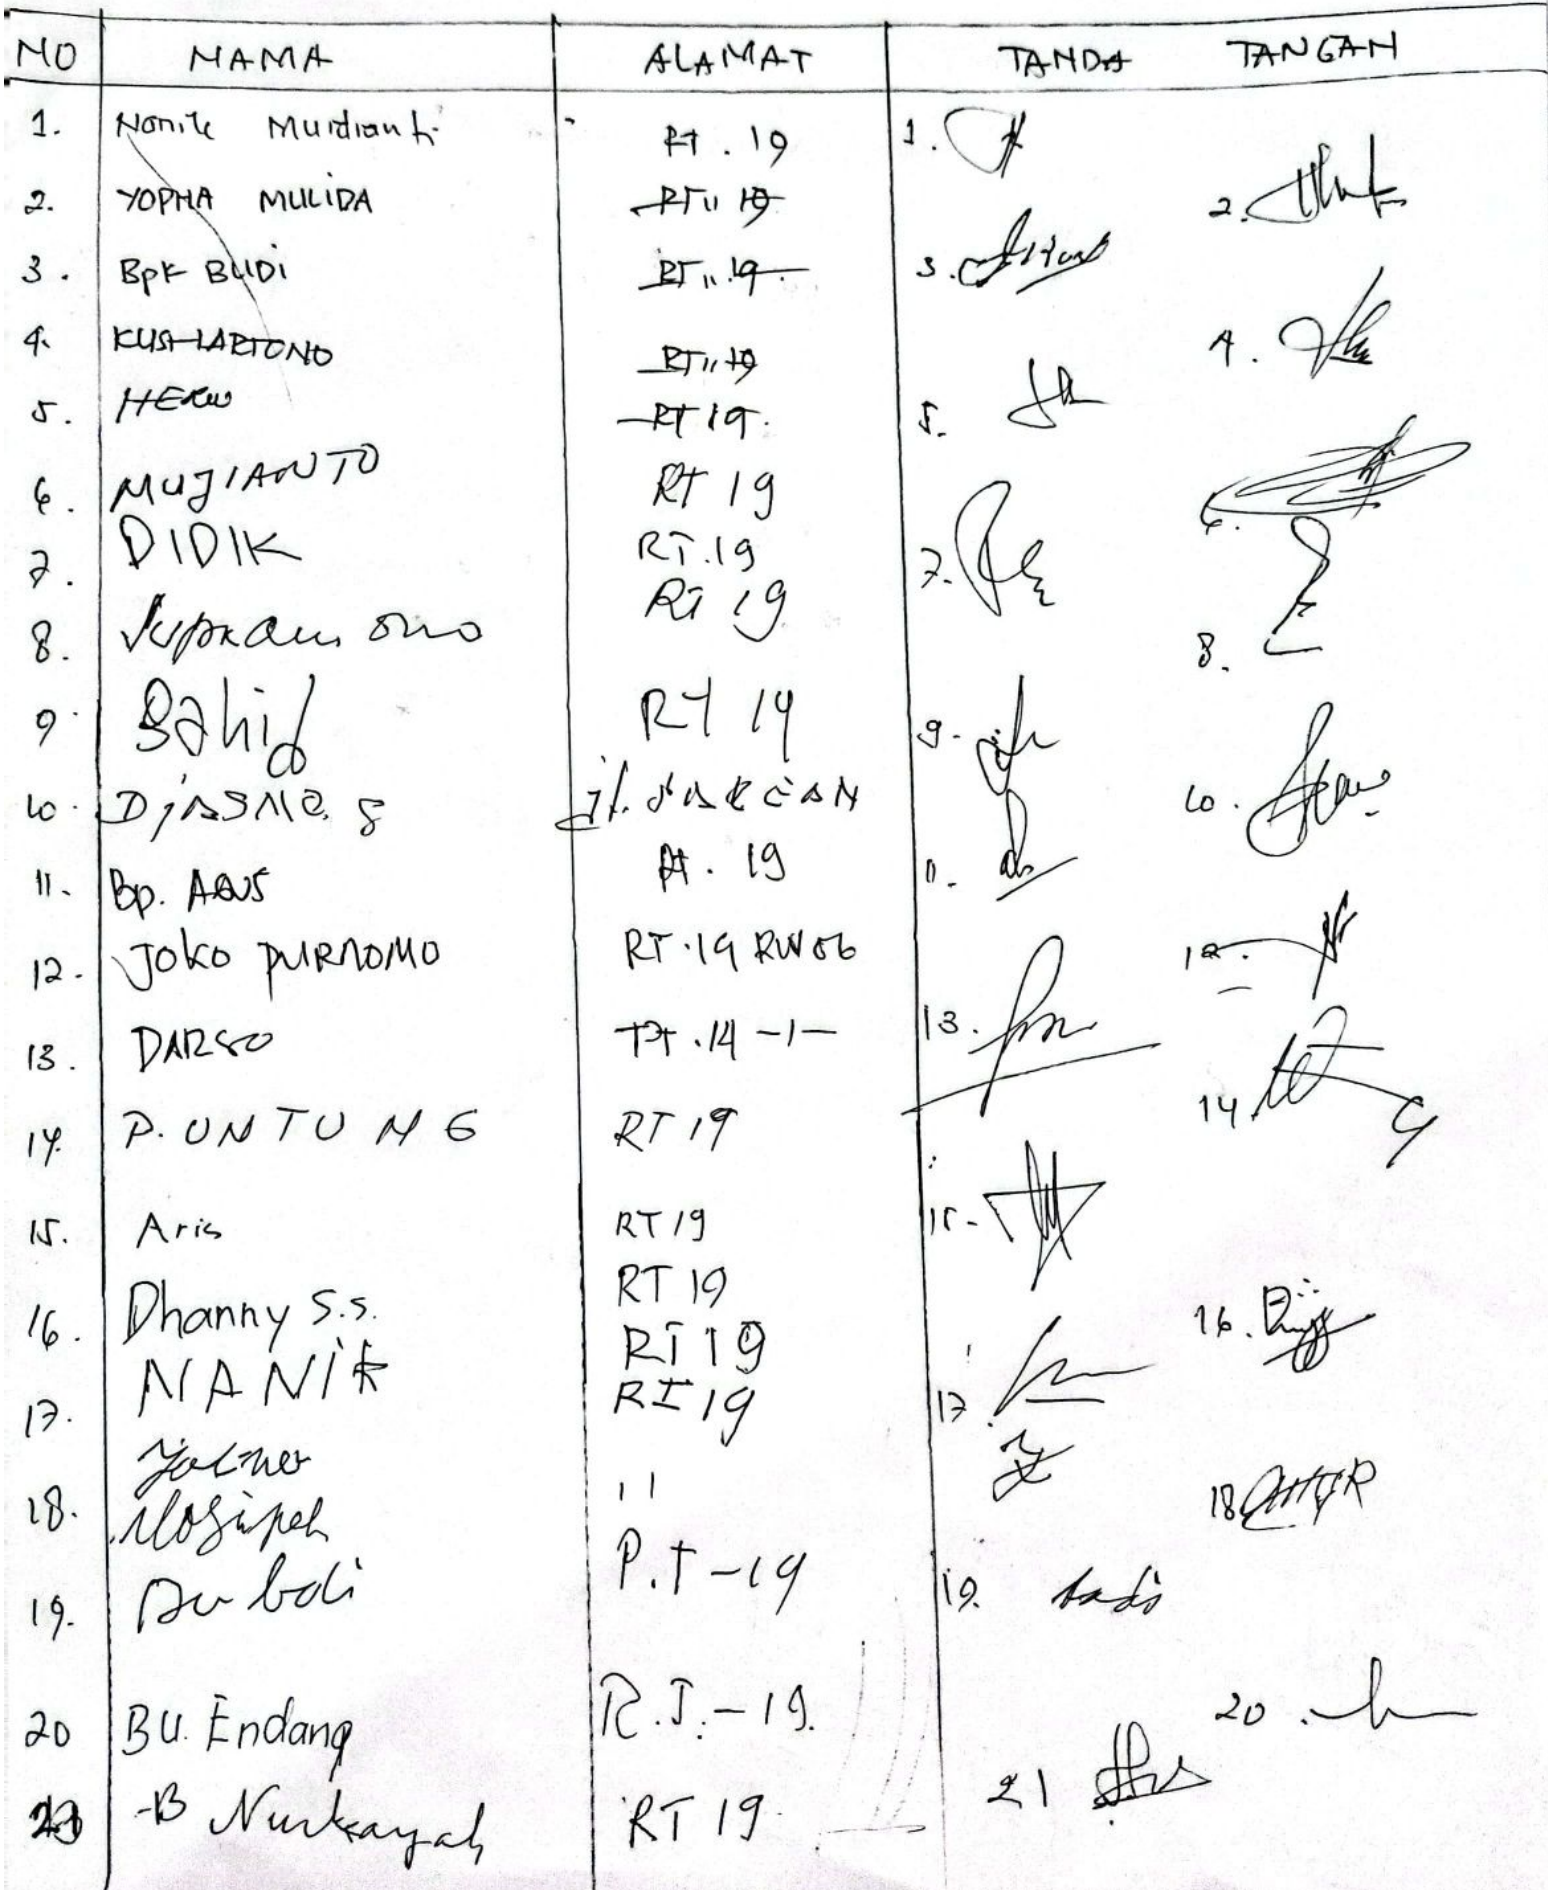 NO NAMA ALAMAT TANDA TANGAN
1. Nanik Murdianti RT. 19 1.
2. YOPHA MULIDA RT 19 2.
3. Bpk BUDI RT 19 3.
4. KUSHARTONO RT 19 4.
5. HERU RT 19. 5.
6. MUJIANTO RT 19 6.
7. DIDIK RT.19 7.
8. RT 19 8.
9. Sahid RT 19 9.
10. Djasmo. S 10.
11. Bp. AGUS RT. 19 11.
12. JOKO PURNOMO RT.19 RW 06 12.
13. DARSO RT.14 -1- 13.
14. P. UNTUNG RT 19 14
15. Aris RT 19 15-
16. Dhanny S.S. RT 19 16.
17. NANIK RT 19 17.
RT 19
18. 11 18
19. R.T-19 19.
20 BU. Endang R.T.-19. 20.
21 B RT 19 21